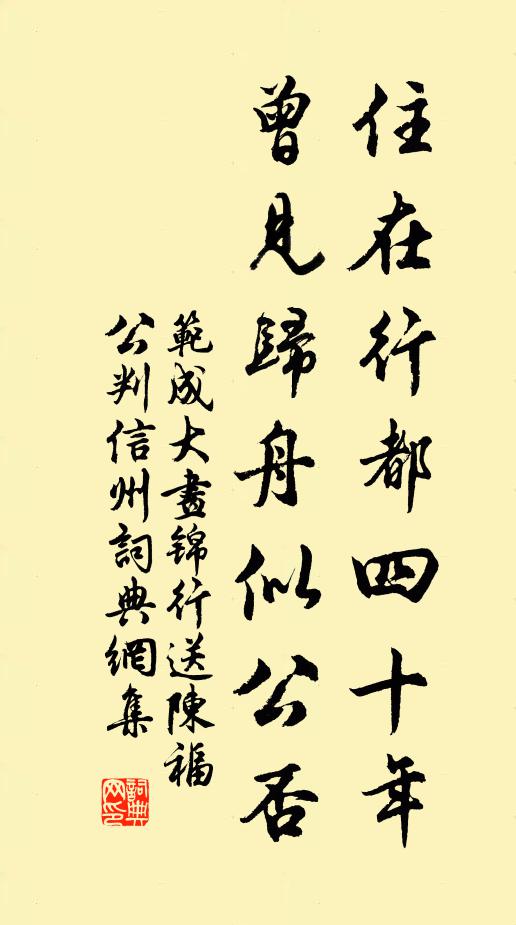 住在行都四十年
曾見歸舟似公否
範成大畫錦行送陳福
公判信州詞典網集
詞典
网印